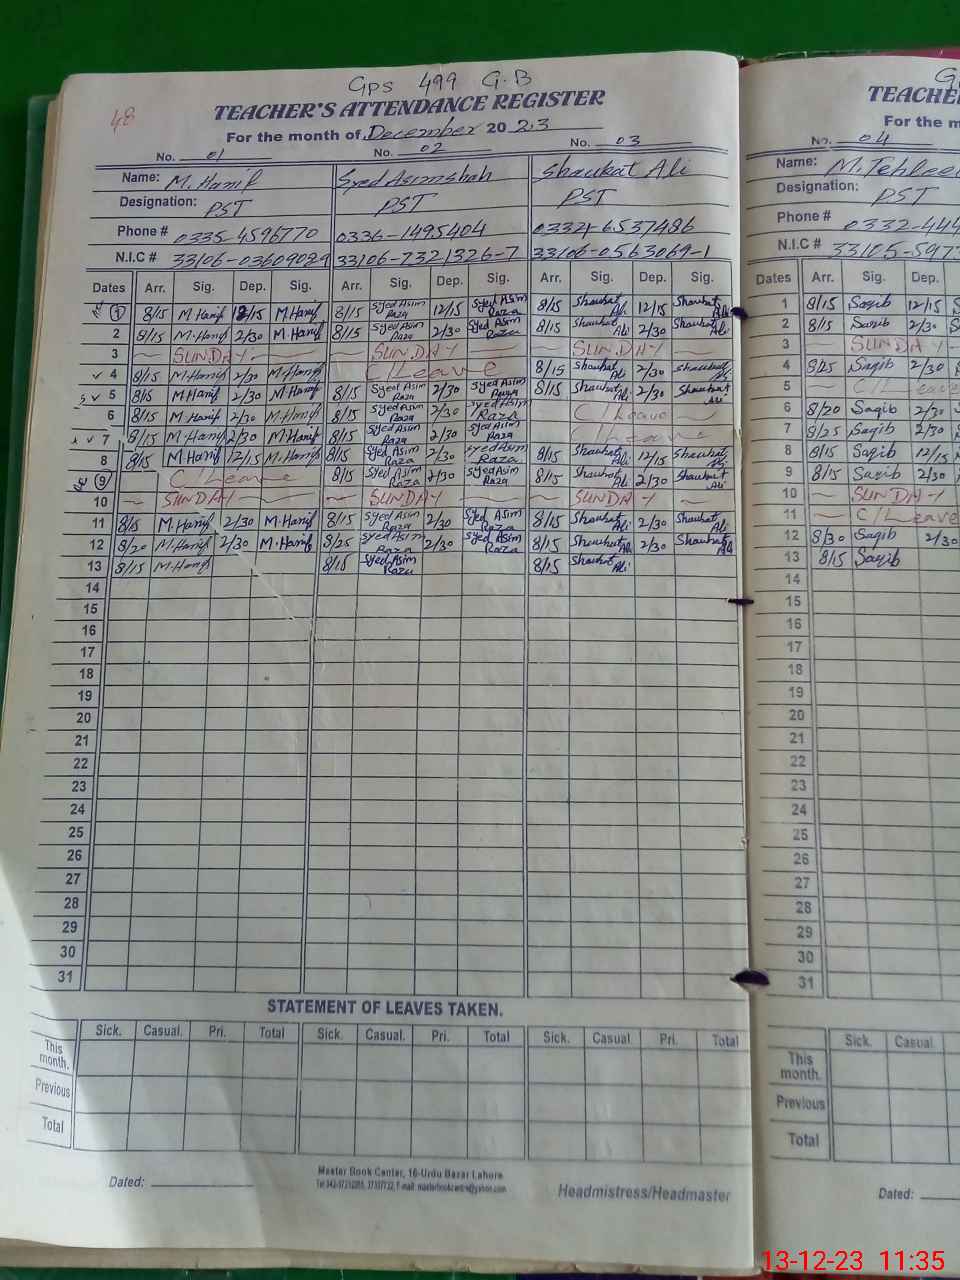 48
GPS 499 G.B
TEACHER'S ATTENDANCE REGISTER
For the month of December 20 23
No. 01 No. 02 No. 03
Name: M. Hanif Syed Asim shah Shaukat Ali
Designation: PST PST PST
Phone # 0335-4596770 0336-1495404 03321-6537486
N.I.C # 33106-0360908 33106-7321326-7 33106-0563069-1
Dates Arr. Sig. Dep. Sig. Arr. Sig. Dep. Sig. Arr. Sig. Dep. Sig.
1 8/15 M.Hanif 12/15 M.Hanif 8/15 Syed Asim Raza 12/15 Syed Asim Raza 8/15 Shaukat Ali 12/15 Shaukat Ali
2 8/15 M.Hanif 2/30 M.Hanif 8/15 Syed Asim Raza 2/30 Syed Asim Raza 8/15 Shaukat Ali 2/30 Shaukat Ali
3 SUNDAY SUNDAY SUNDAY
4 8/15 M.Hanif 2/30 M.Hanif C/Leave 8/15 Shaukat Ali 2/30 Shaukat Ali
5 8/15 M.Hanif 2/30 M.Hanif 8/15 Syed Asim Raza 2/30 Syed Asim Raza 8/15 Shaukat Ali 2/30 Shaukat Ali
6 8/15 M.Hanif 2/30 M.Hanif 8/15 Syed Asim Raza 2/30 Syed Asim Raza C/Leave
7 8/15 M.Hanif 2/30 M.Hanif 8/15 Syed Asim Raza 2/30 Syed Asim Raza C/Leave
8 8/15 M.Hanif 12/15 M.Hanif 8/15 Syed Asim Raza 2/30 Syed Asim Raza 8/15 Shaukat Ali 12/15 Shaukat Ali
9 C/Leave 8/15 Syed Asim Raza 2/30 Syed Asim Raza 8/15 Shaukat Ali 2/30 Shaukat Ali
10 SUNDAY SUNDAY SUNDAY
11 8/15 M.Hanif 2/30 M.Hanif 8/15 Syed Asim Raza 2/30 Syed Asim Raza 8/15 Shaukat Ali 2/30 Shaukat Ali
12 8/20 M.Hanif 2/30 M.Hanif 8/25 Syed Asim Raza 2/30 Syed Asim Raza 8/15 Shaukat Ali 2/30 Shaukat Ali
13 8/15 M.Hanif 8/15 Syed Asim Raza 8/15 Shaukat Ali
14
15
16
17
18
19
20
21
22
23
24
25
26
27
28
29
30
31
STATEMENT OF LEAVES TAKEN.
Sick. Casual. Pri. Total Sick. Casual. Pri. Total Sick. Casual Pri. Total
This month.
Previous
Total
Dated:
Master Book Center, 16-Urdu Bazar Lahore
Headmistress/Headmaster
G
TEACHE
For the m
No. 04
Name: M. Tehleel
Designation: PST
Phone # 0332-444
N.I.C # 33105-597
Dates Arr. Sig. Dep.
1 8/15 Saqib 12/15 S
2 8/15 Saqib 2/30 S
3 SUNDAY
4 8/25 Saqib 2/30
5 C/Leave
6 8/20 Saqib 2/30
7 8/25 Saqib 2/30
8 8/15 Saqib 12/15
9 8/15 Saqib 2/30
10 SUNDAY
11 C/Leave
12 8/30 Saqib 2/30
13 8/15 Saqib
14
15
16
17
18
19
20
21
22
23
24
25
26
27
28
29
30
31
Sick. Casual
This month.
Previous
Total
Dated:
13-12-23 11:35